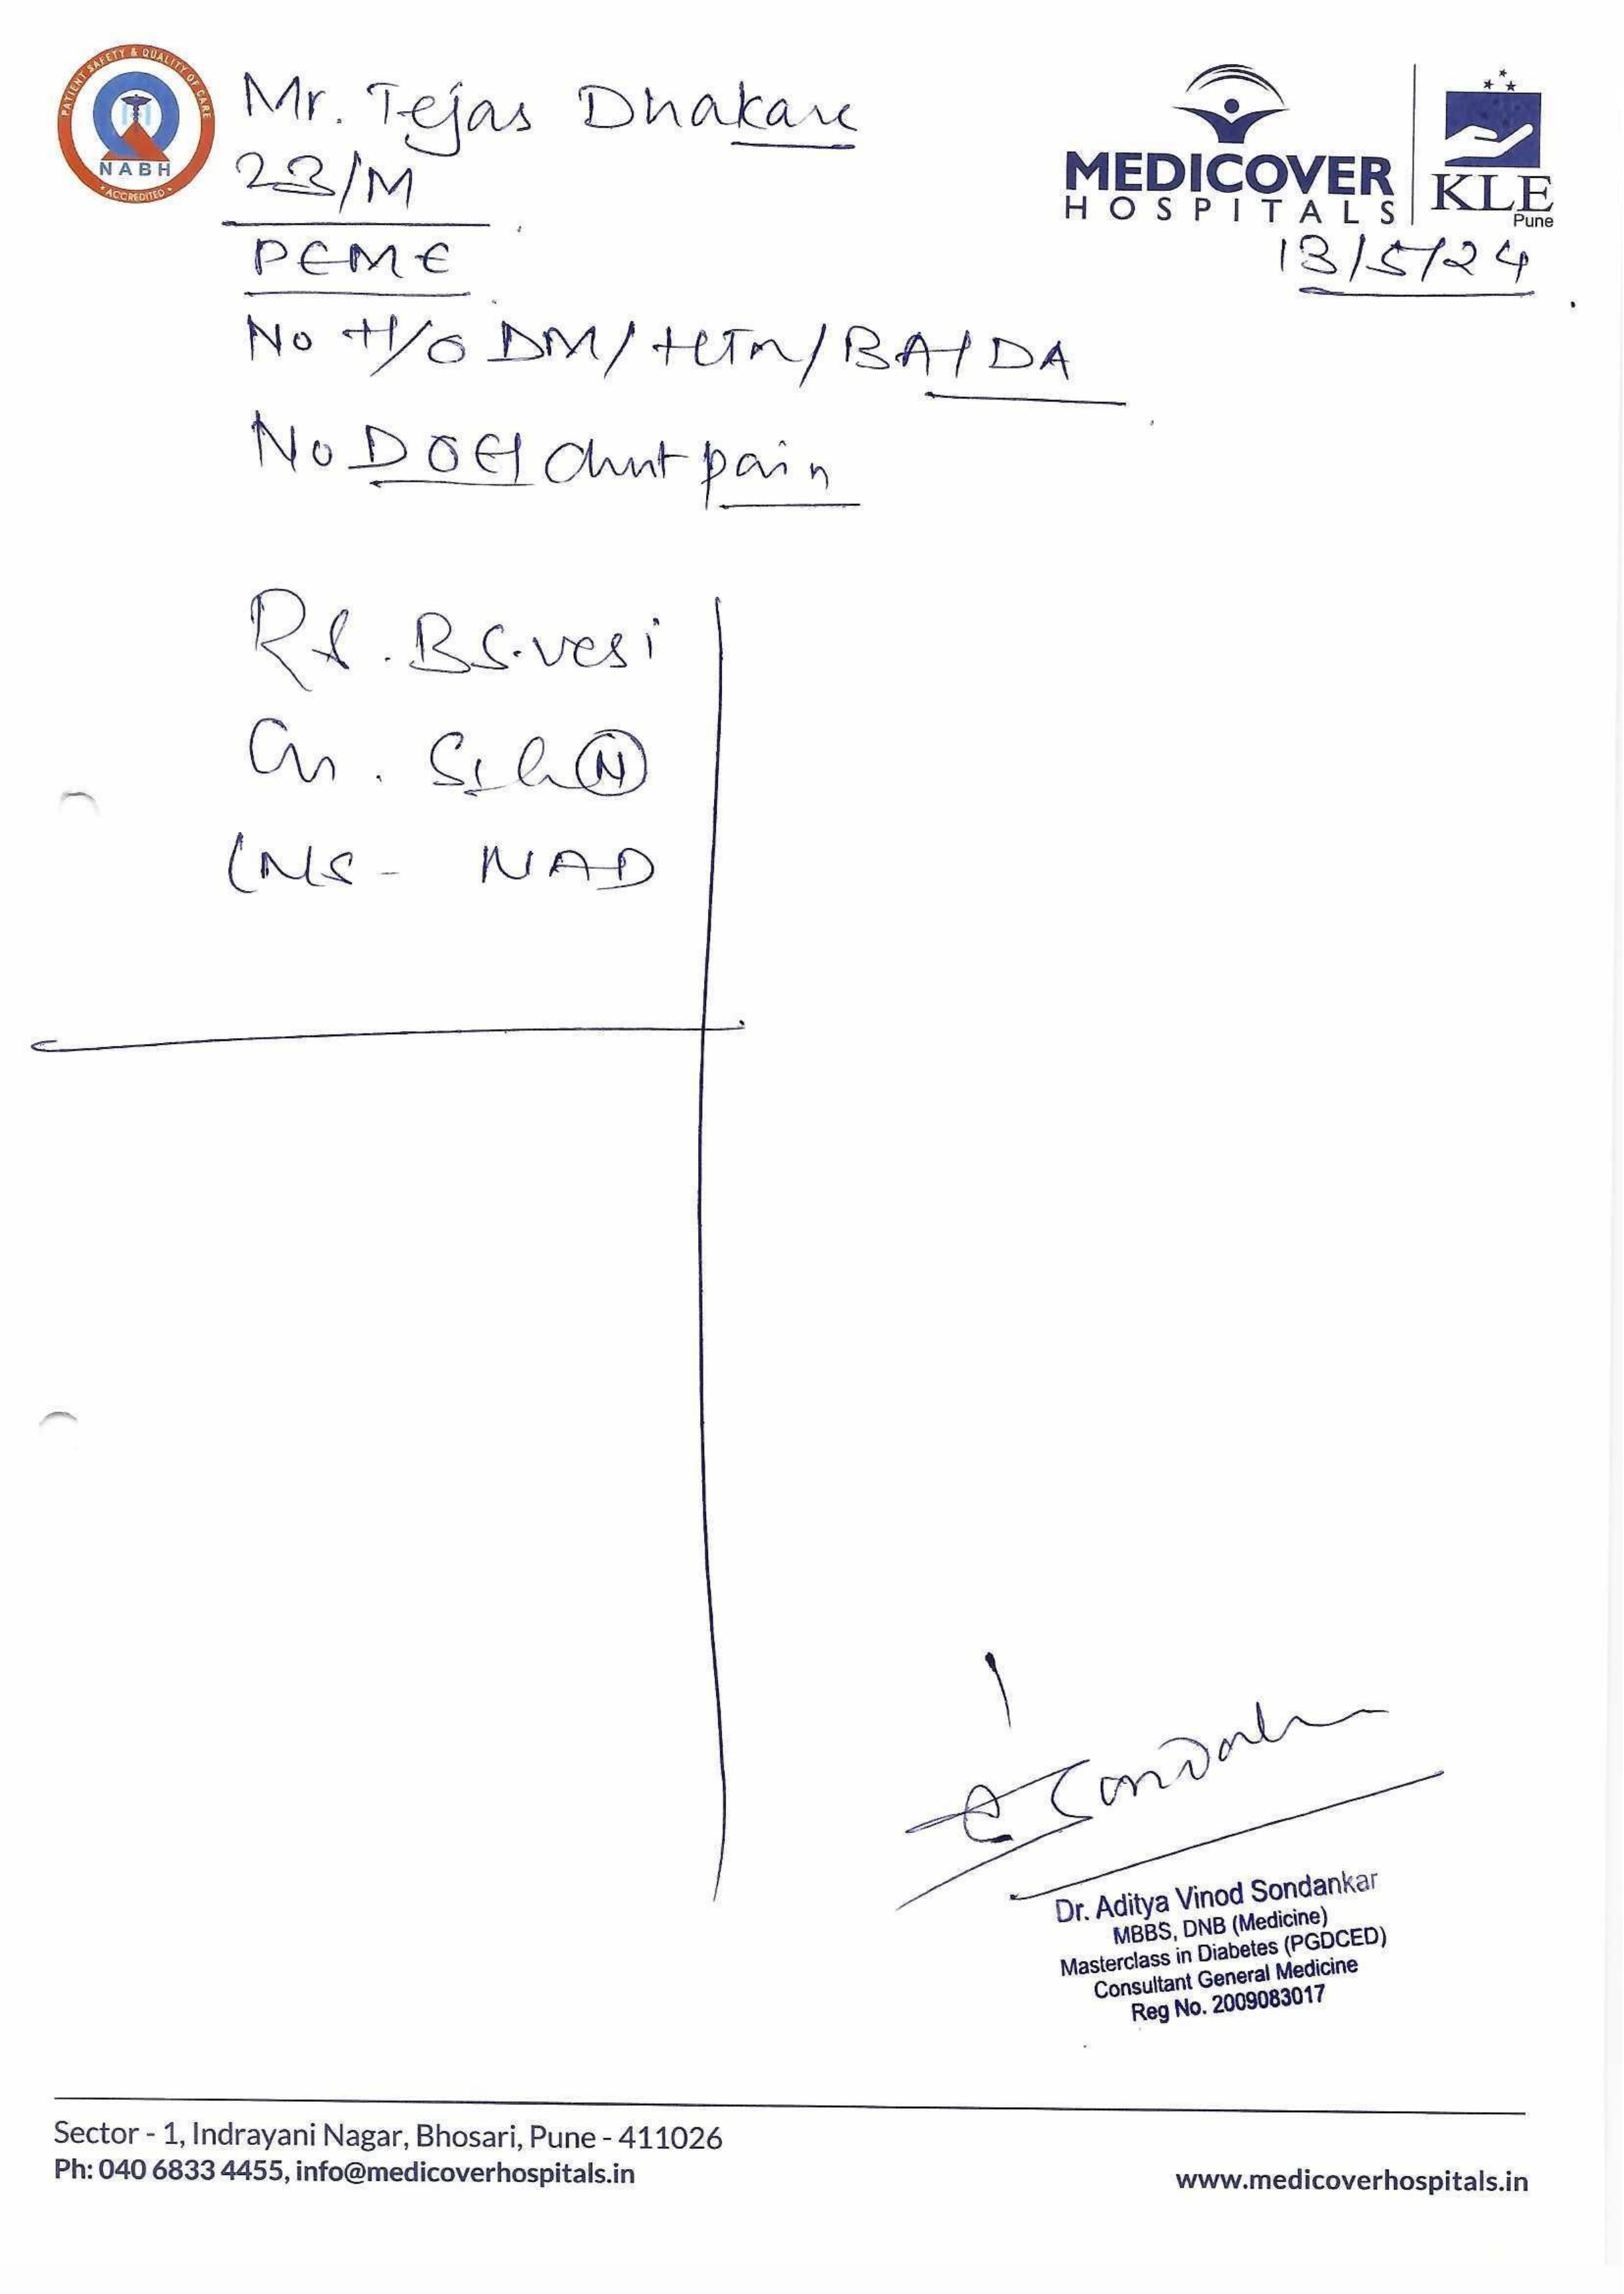 PATIENT SAFETY & QUALITY OF CARE
NABH
ACCREDITED
Mr. Tejas Dhakare
MEDICOVER
HOSPITALS
KLE
Pune
23/M
13/5/24
PEME
No H/O DM/HTN/BA/DA
No DOE/ chest pain
RS. BS-vesi
CVS. S1S2 N
CNS - NAD
Dr. Aditya Vinod Sondankar
MBBS, DNB (Medicine)
Masterclass in Diabetes (PGDCED)
Consultant General Medicine
Reg No. 2009083017
Sector - 1, Indrayani Nagar, Bhosari, Pune - 411026
Ph: 040 6833 4455, info@medicoverhospitals.in
www.medicoverhospitals.in